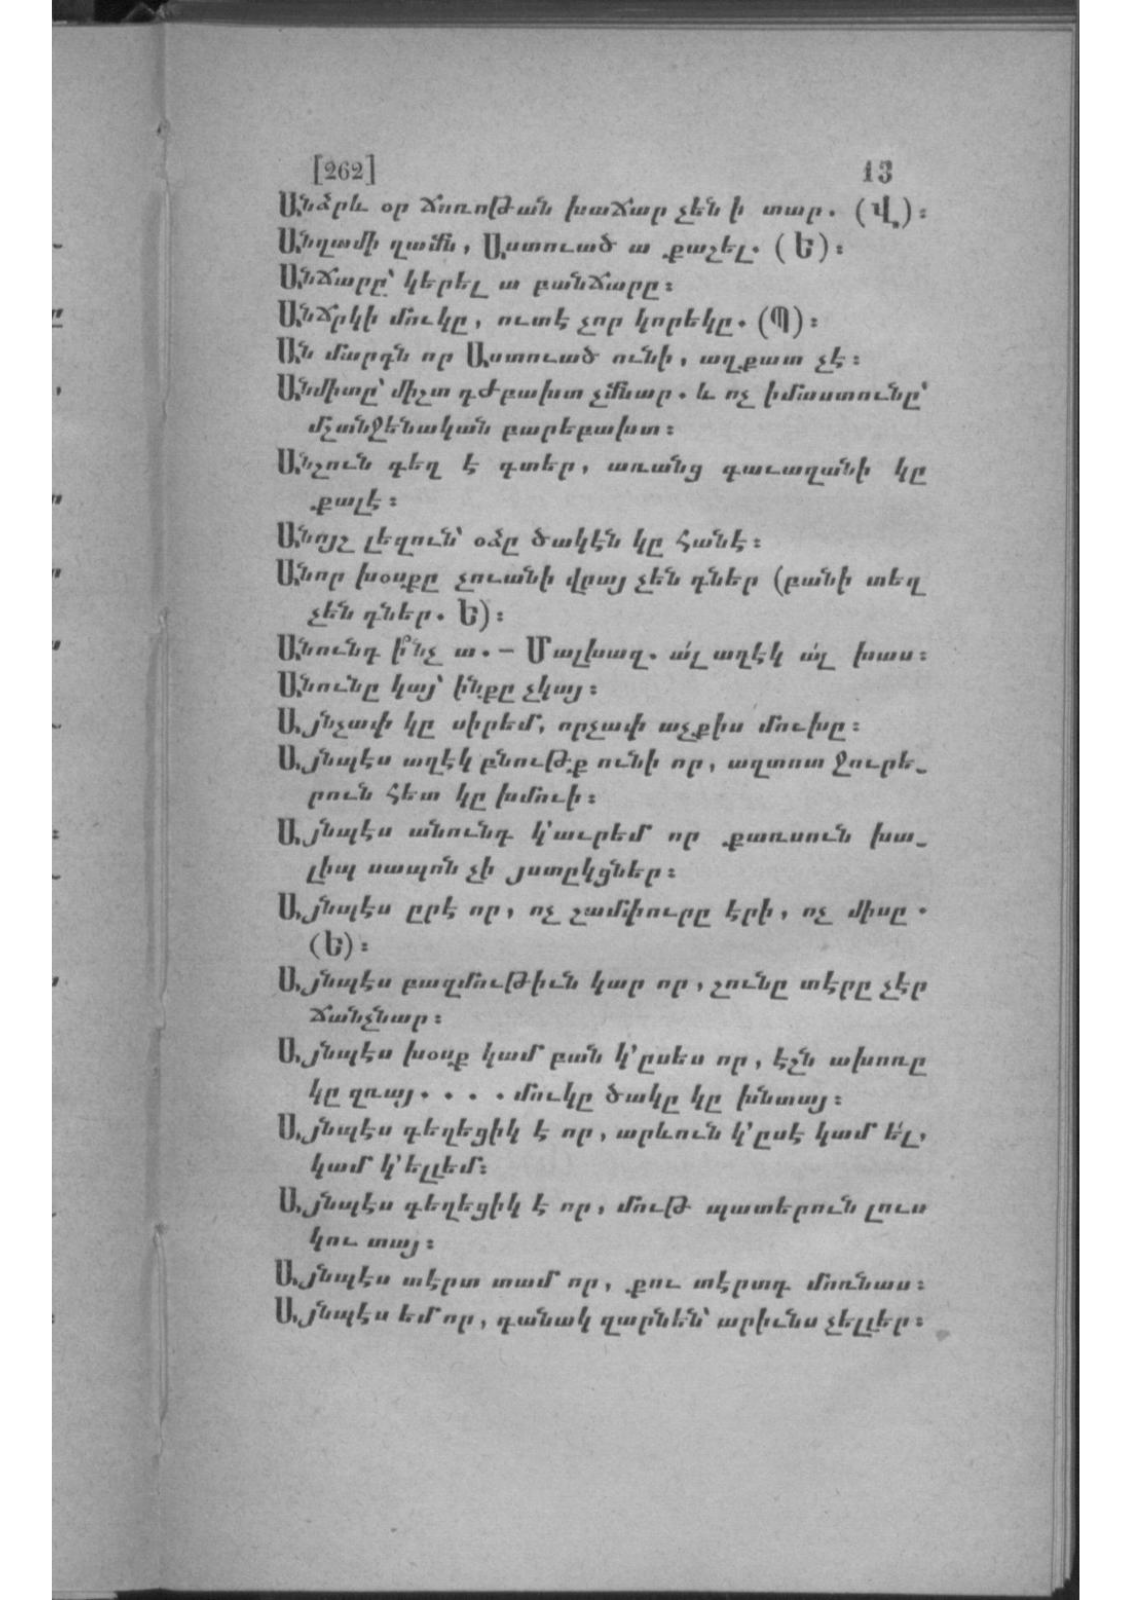 [262] 13
Անձրև օր ճոռոթան խաճար չեն ի տար. (Վ)։
Անղամի ղամն, Աստուած ա քաշել. (Ե)։
Անճարը՝ կերել ա բանճարը։
Անճրկի մուկը, ուտէ չոր կորեկը. (Պ)։
Ան մարդն որ Աստուած ունի, աղքատ չէ։
Անմիտը՝ միշտ դժբախտ չմնար. և ոչ իմաստունը՝
մշտնջենական բարեբախտ։
Անշուն գեղ է գտեր, առանց գաւազանի կը
քալէ։
Անոյշ լեզուն՝ օձը ծակէն կը հանէ։
Անոր խօսքը չուանի վրայ չեն դներ (բանի տեղ
չեն դներ. Ե)։
Անունդ ի՞նչ ա.— Մալխազ. ա՛լ աղէկ ա՛լ խաս։
Անունը կայ՝ ինքը չկայ։
Այնչափ կը սիրեմ, որչափ աչքիս մուխը։
Այնպէս աղէկ բնութք ունի որ, աղտոտ ջուրե-
րուն հետ կը խմուի։
Այնպէս անունդ կ՚աւրեմ որ քառսուն խա-
լիպ սապոն չի յստըկցներ։
Այնպէս ըրէ որ, ոչ շամփուրը էրի, ոչ միսը.
(Ե)։
Այնպէս բազմութիւն կար որ, շունը տէրը չէր
ճանչնար։
Այնպէս խօսք կամ բան կ՚ըսես որ, էշն ախոռը
կը զռայ. . . . մուկը ծակը կը խնտայ։
Այնպէս գեղեցիկ է որ, արևուն կ՚ըսէ կամ ե՛լ,
կամ կ՚ելլեմ։
Այնպէս գեղեցիկ է որ, մութ պատերուն լուս
կու տայ։
Այնպէս տէրտ տամ որ, քու տէրտդ մոռնաս։
Այնպէս եմ որ, դանակ զարնեն՝ արիւնս չելլեր։